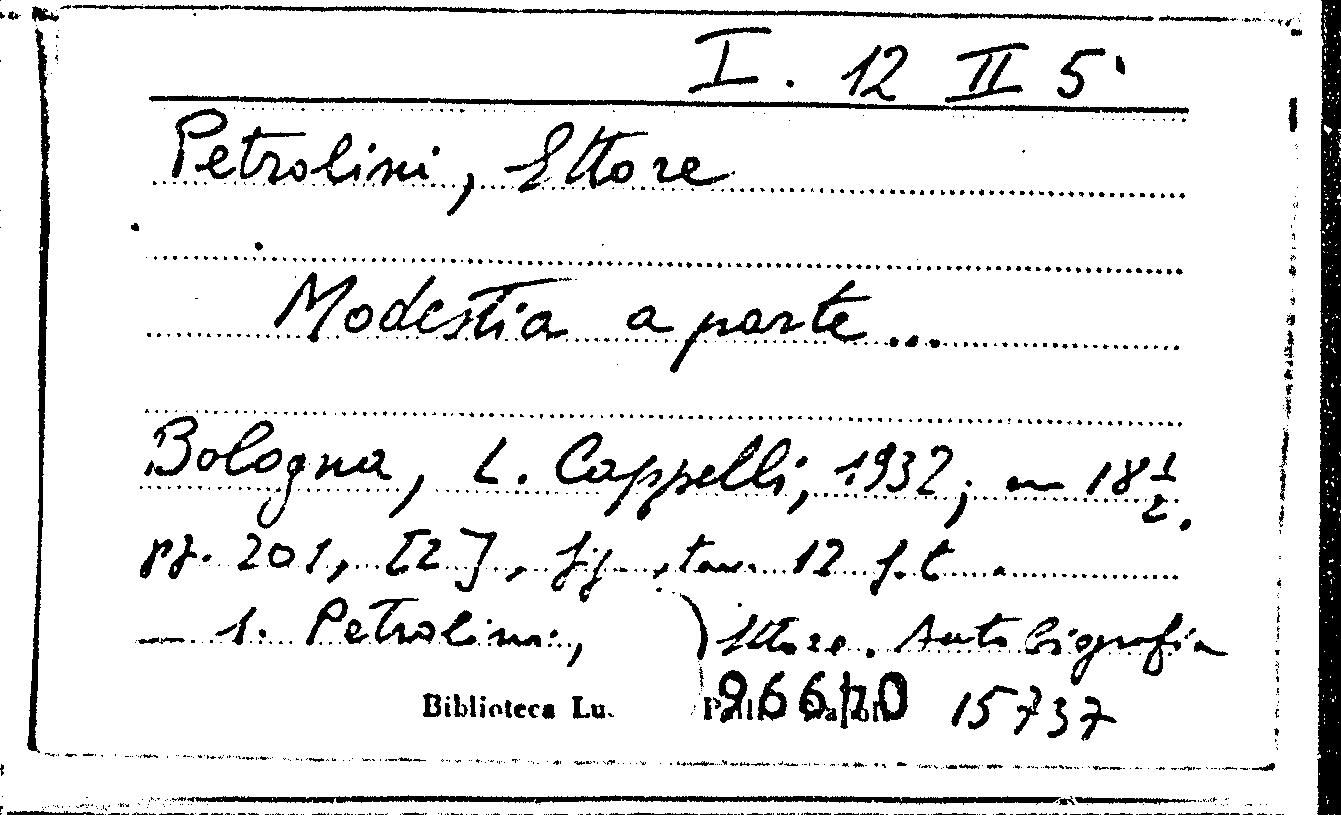 I. 12 II 5
Petrolini, Ettore
Modestia a parte...
Bologna, L. Cappelli, 1932, in 18 1/2.
pp. 201, [2], fig., tav. 12 f.t.
— 1. Petrolini, Ettore. Autobigrafia
Biblioteca Lu. 15737